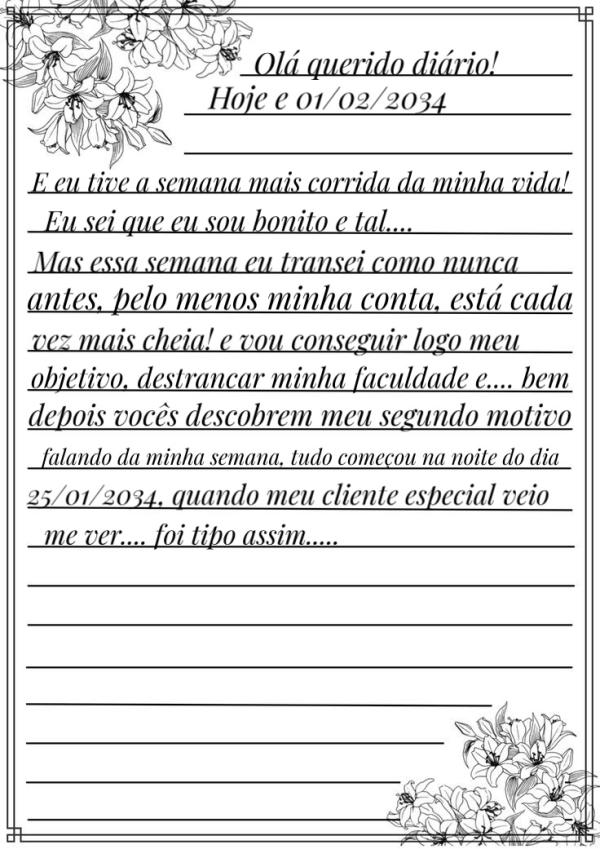 Olá querido diário!
Hoje e 01/02/2034
E eu tive a semana mais corrida da minha vida!
Eu sei que eu sou bonito e tal....
Mas essa semana eu transei como nunca
antes, pelo menos minha conta, está cada
vez mais cheia! e vou conseguir logo meu
objetivo, destrancar minha faculdade e.... bem
depois vocês descobrem meu segundo motivo
falando da minha semana, tudo começou na noite do dia
25/01/2034, quando meu cliente especial veio
me ver.... foi tipo assim.....